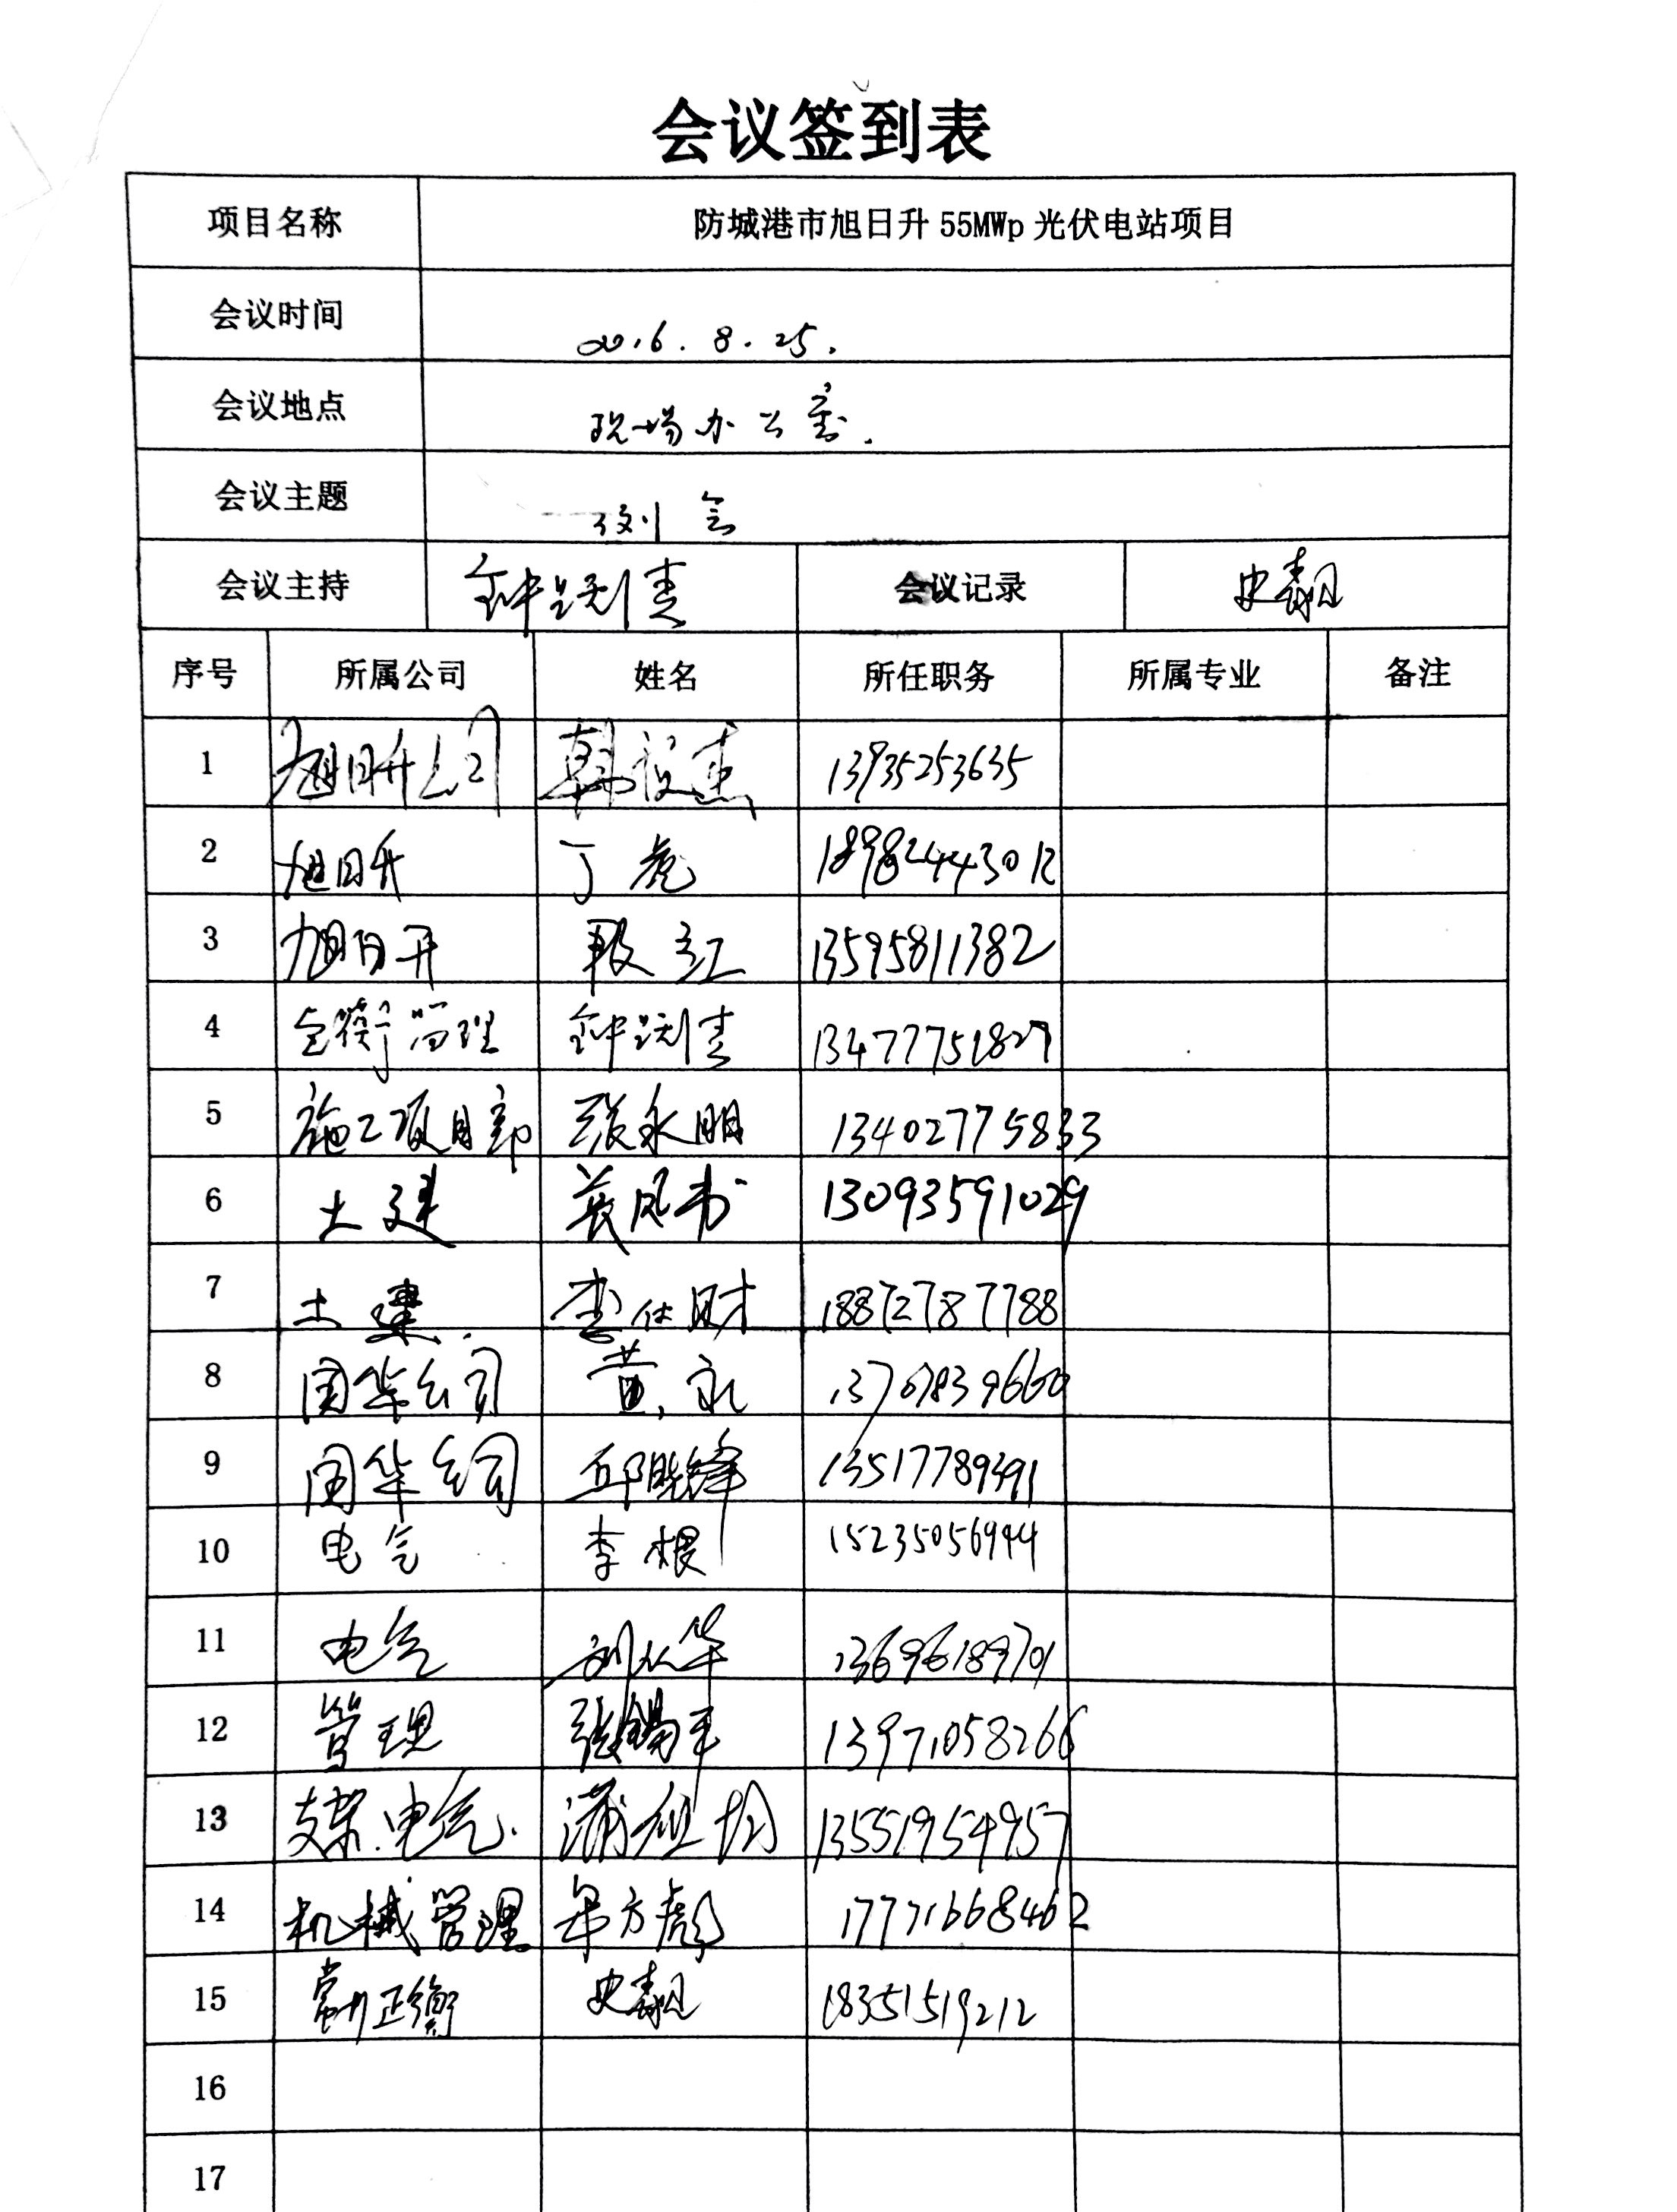 会议签到表
项目名称 防城港市旭日升 55MWp 光伏电站项目
会议时间 2016.8.25.
会议地点 现场办公室.
会议主题 例会
会议主持 钟 会议记录 史
序号 所属公司 姓名 所任职务 所属专业 备注
1 旭日升公司 韩 杰 13935253635
2 旭日升 丁虎 18982444301
3 旭日升 殷红 13595811382
4 管理 钟 13477751827
5 施工项目部 张永明 13402775833
6 土建 凤书 13093591029
7 土建 李仕财 18872787788
8 国华公司 黄永 13707839660
9 国华公司 邱晓锋 13517789391
10 电气 李根 15235056944
11 电气 刘 华 13696189701
12 管理 张锡平 13971058266
13 支架.电气. 蒲 13551954957
14 机械管理 牟方彪 17771668462
15 常州正衡 史 18351519212
16
17